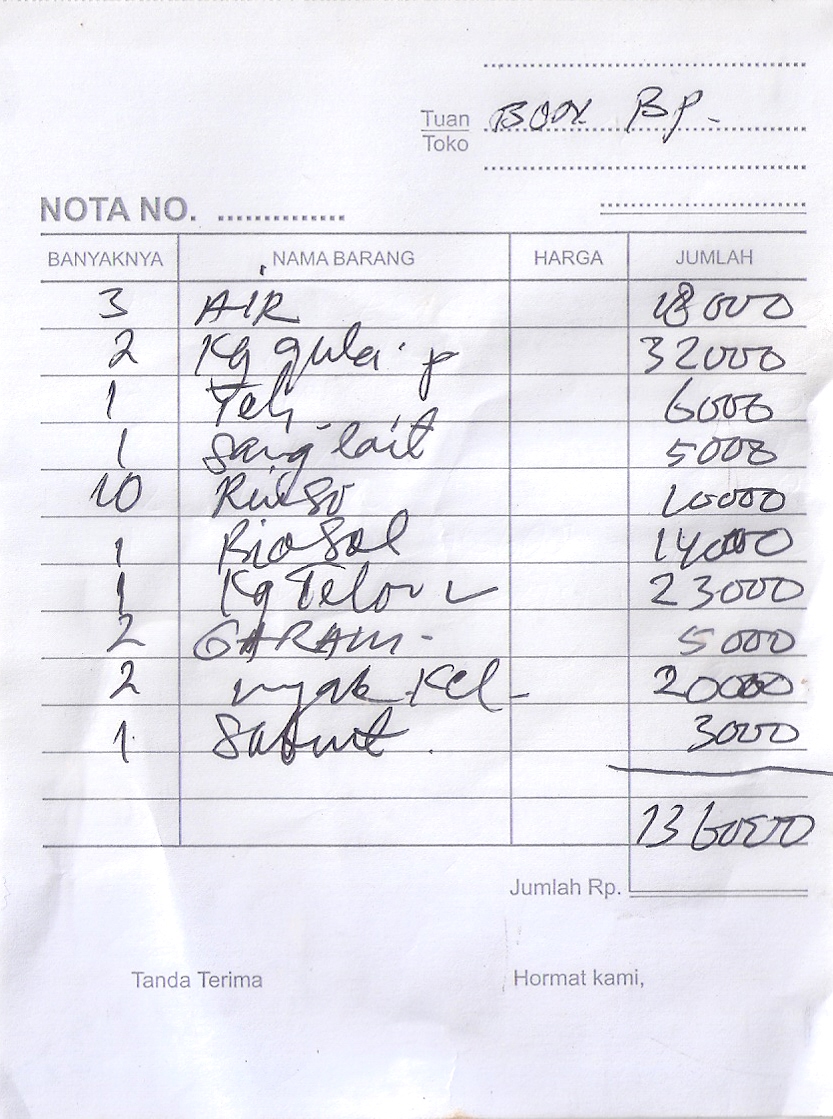 Tuan BOOX BP.
Toko
NOTA NO. ..............
BANYAKNYA NAMA BARANG HARGA JUMLAH
3 AIR 18000
2 Kg gula p 32000
1 Teh 6000
1 5000
10 Rinso 10000
1 14000
1 Kg Telour 23000
2 GARAM - 5000
2 myak Kel - 20000
1 Sabut 3000
136000
Jumlah Rp.
Tanda Terima Hormat kami,